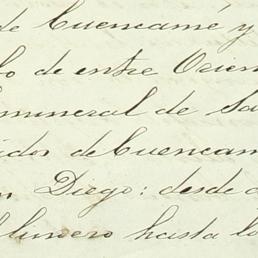 de Cuencamé y
bo de entre Orien
mineral de Sa
idos de Cuencam
n Diego: desde a
linero hasta lo